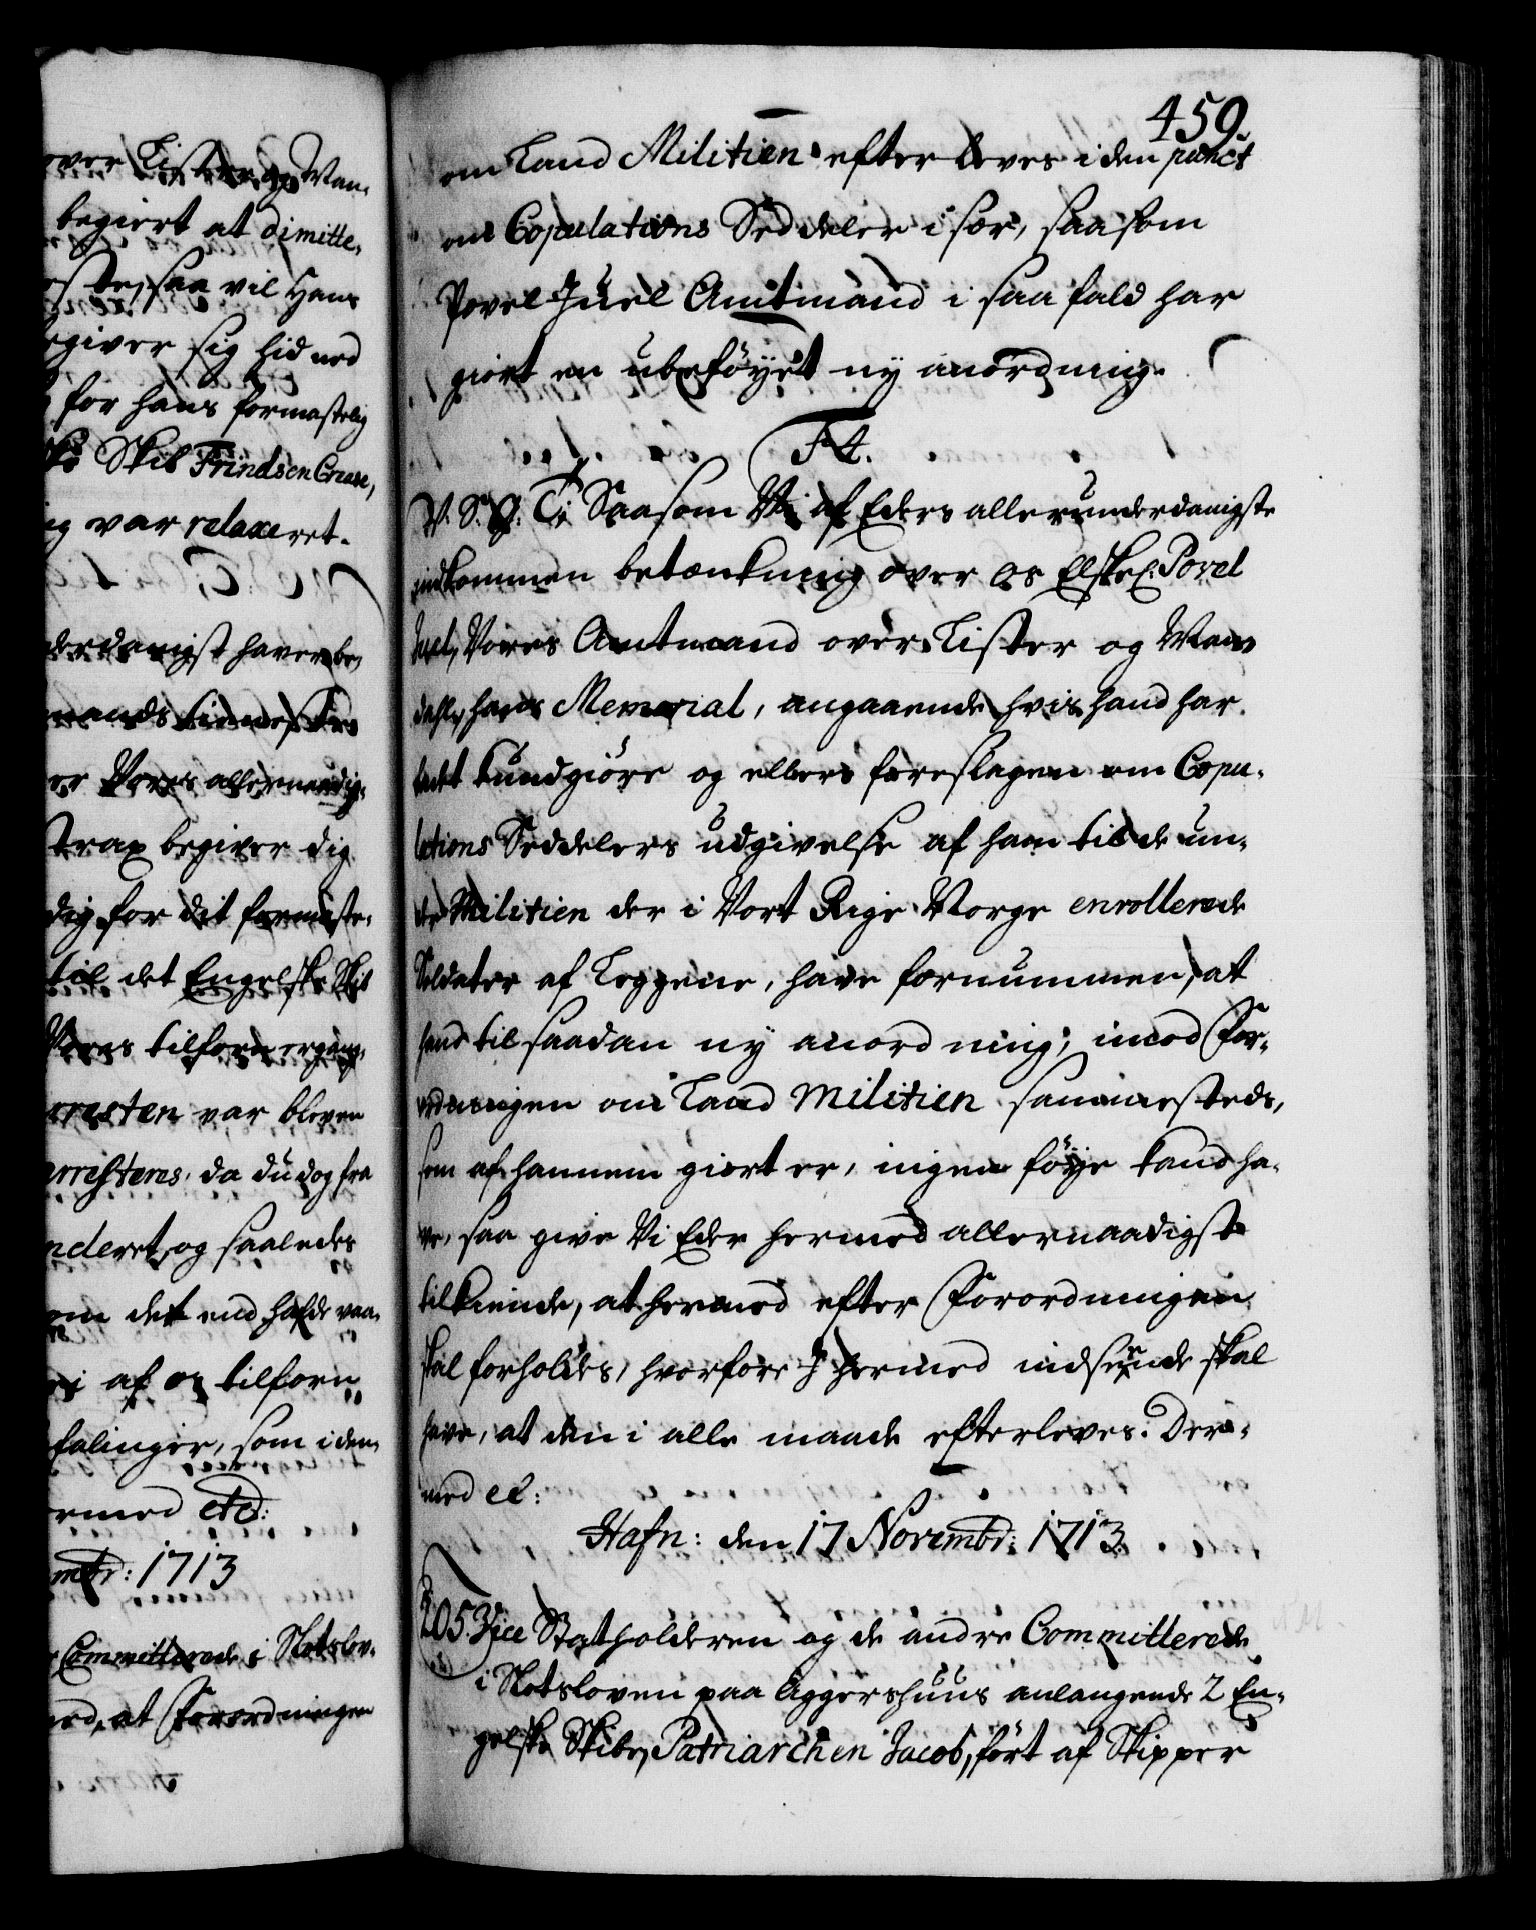 over Lister og Man-
begiert at dimitte-
saa vil Hans
begiver sig hid ned
for hans formastelig
Skib Frindsen Crease,
var relaxeret.
derdanigst haver be-
Vores allernaadig-
strax begiver dig
dig for dit formaste-
til det Engelske Skib
Vores tilforn ergang-
arresten var bleven
arresteres, da du dog fra
og saaledes
om det end hafde vaa-
af os tilforn
falinger, som i den-
ermed etc:
1713
Committerede i Slotslov-
at Forordningen
459.
om Land Militien efterleves i den punct
om Copulations Seddeler i sær, saasom
Povel Juel Amtmand i saa fald har
giort en ubeføyet ny anordning.
F4.
V. S. G. T. Saasom Vi af Eders allerunderdanigste
indkommen betænkning over os Elskel: Povel
Juel, Vores Amtmand over Lister og Man-
dahls, hans Memorial, angaaende hvis hand har
ladet kundgiøre og ellers foreslagen om Copu-
lations Seddelers udgivelse af ham til de un-
der Militien der i Vort Rige Norge enrollerede
Soldater af Leggene, have fornummen, at
hand til saadan ny anordning, imod For-
ordningen om Land Militien sammesteds,
som af hannem giort er, ingen føye kand ha-
ve, saa give Vi Eder hermed allernaadigst
tilkiende, at hermed efter Forordningen
skal forholdes, hvorfore I hermed indseende skal
have, at den i alle maade efterleves. Der-
med etc:
Hafn: den 17 Novembr: 1713.
205. Vice Statholderen og de andre Committerede
i Slotsloven paa Aggershuus anlangende 2 En-
gelske Skibe, Patriarchen Jacob, ført af Skipper